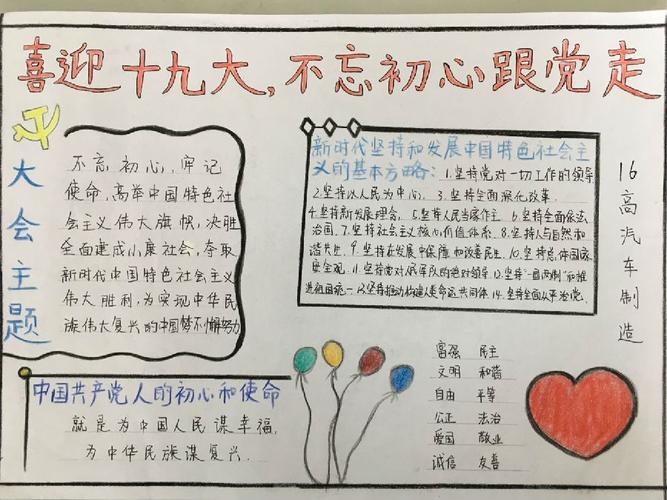 喜迎十九大,不忘初心跟党走
大会主题
不忘初心,牢记
使命,高举中国特色社
会主义伟大旗帜,决胜
全面建成小康社会,夺取
新时代中国特色社会主义
伟大胜利,为实现中华民
族伟大复兴的中国梦不懈努力
新时代坚持和发展中国特色社会主
义的基本方略:1.坚持党对一切工作的领导
2.坚持以人民为中心. 3.坚持全面深化改革.
4.坚持新发展理念. 5.坚持人民当家作主 6.坚持全面依法
治国. 7.坚持社会主义核心价值体系. 8.坚持人与自然和
谐共生. 9.坚持在发展中保障和改善民生. 10.坚持总体国家
安全观. 11.坚持党对人民军队的绝对领导. 12.坚持"一国两制"和推
进祖国统一 13.坚持推动构建人类命运共同体 14.坚持全面从严治党.
16高汽车制造
中国共产党人的初心和使命
就是为中国人民谋幸福,
为中华民族谋复兴.
富强 民主
文明 和谐
自由 平等
公正 法治
爱国 敬业
诚信 友善